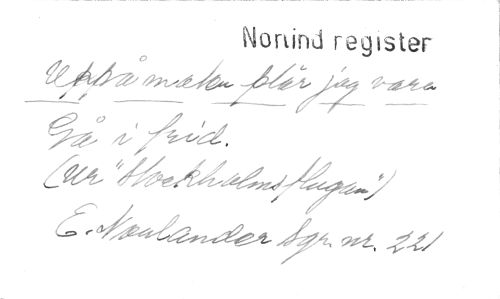 Norlind register
Uppå makn plär jag vara
Gå i frid.
(Ur "Stockholmsflugan")
E. Noulander Sgr. nr. 221